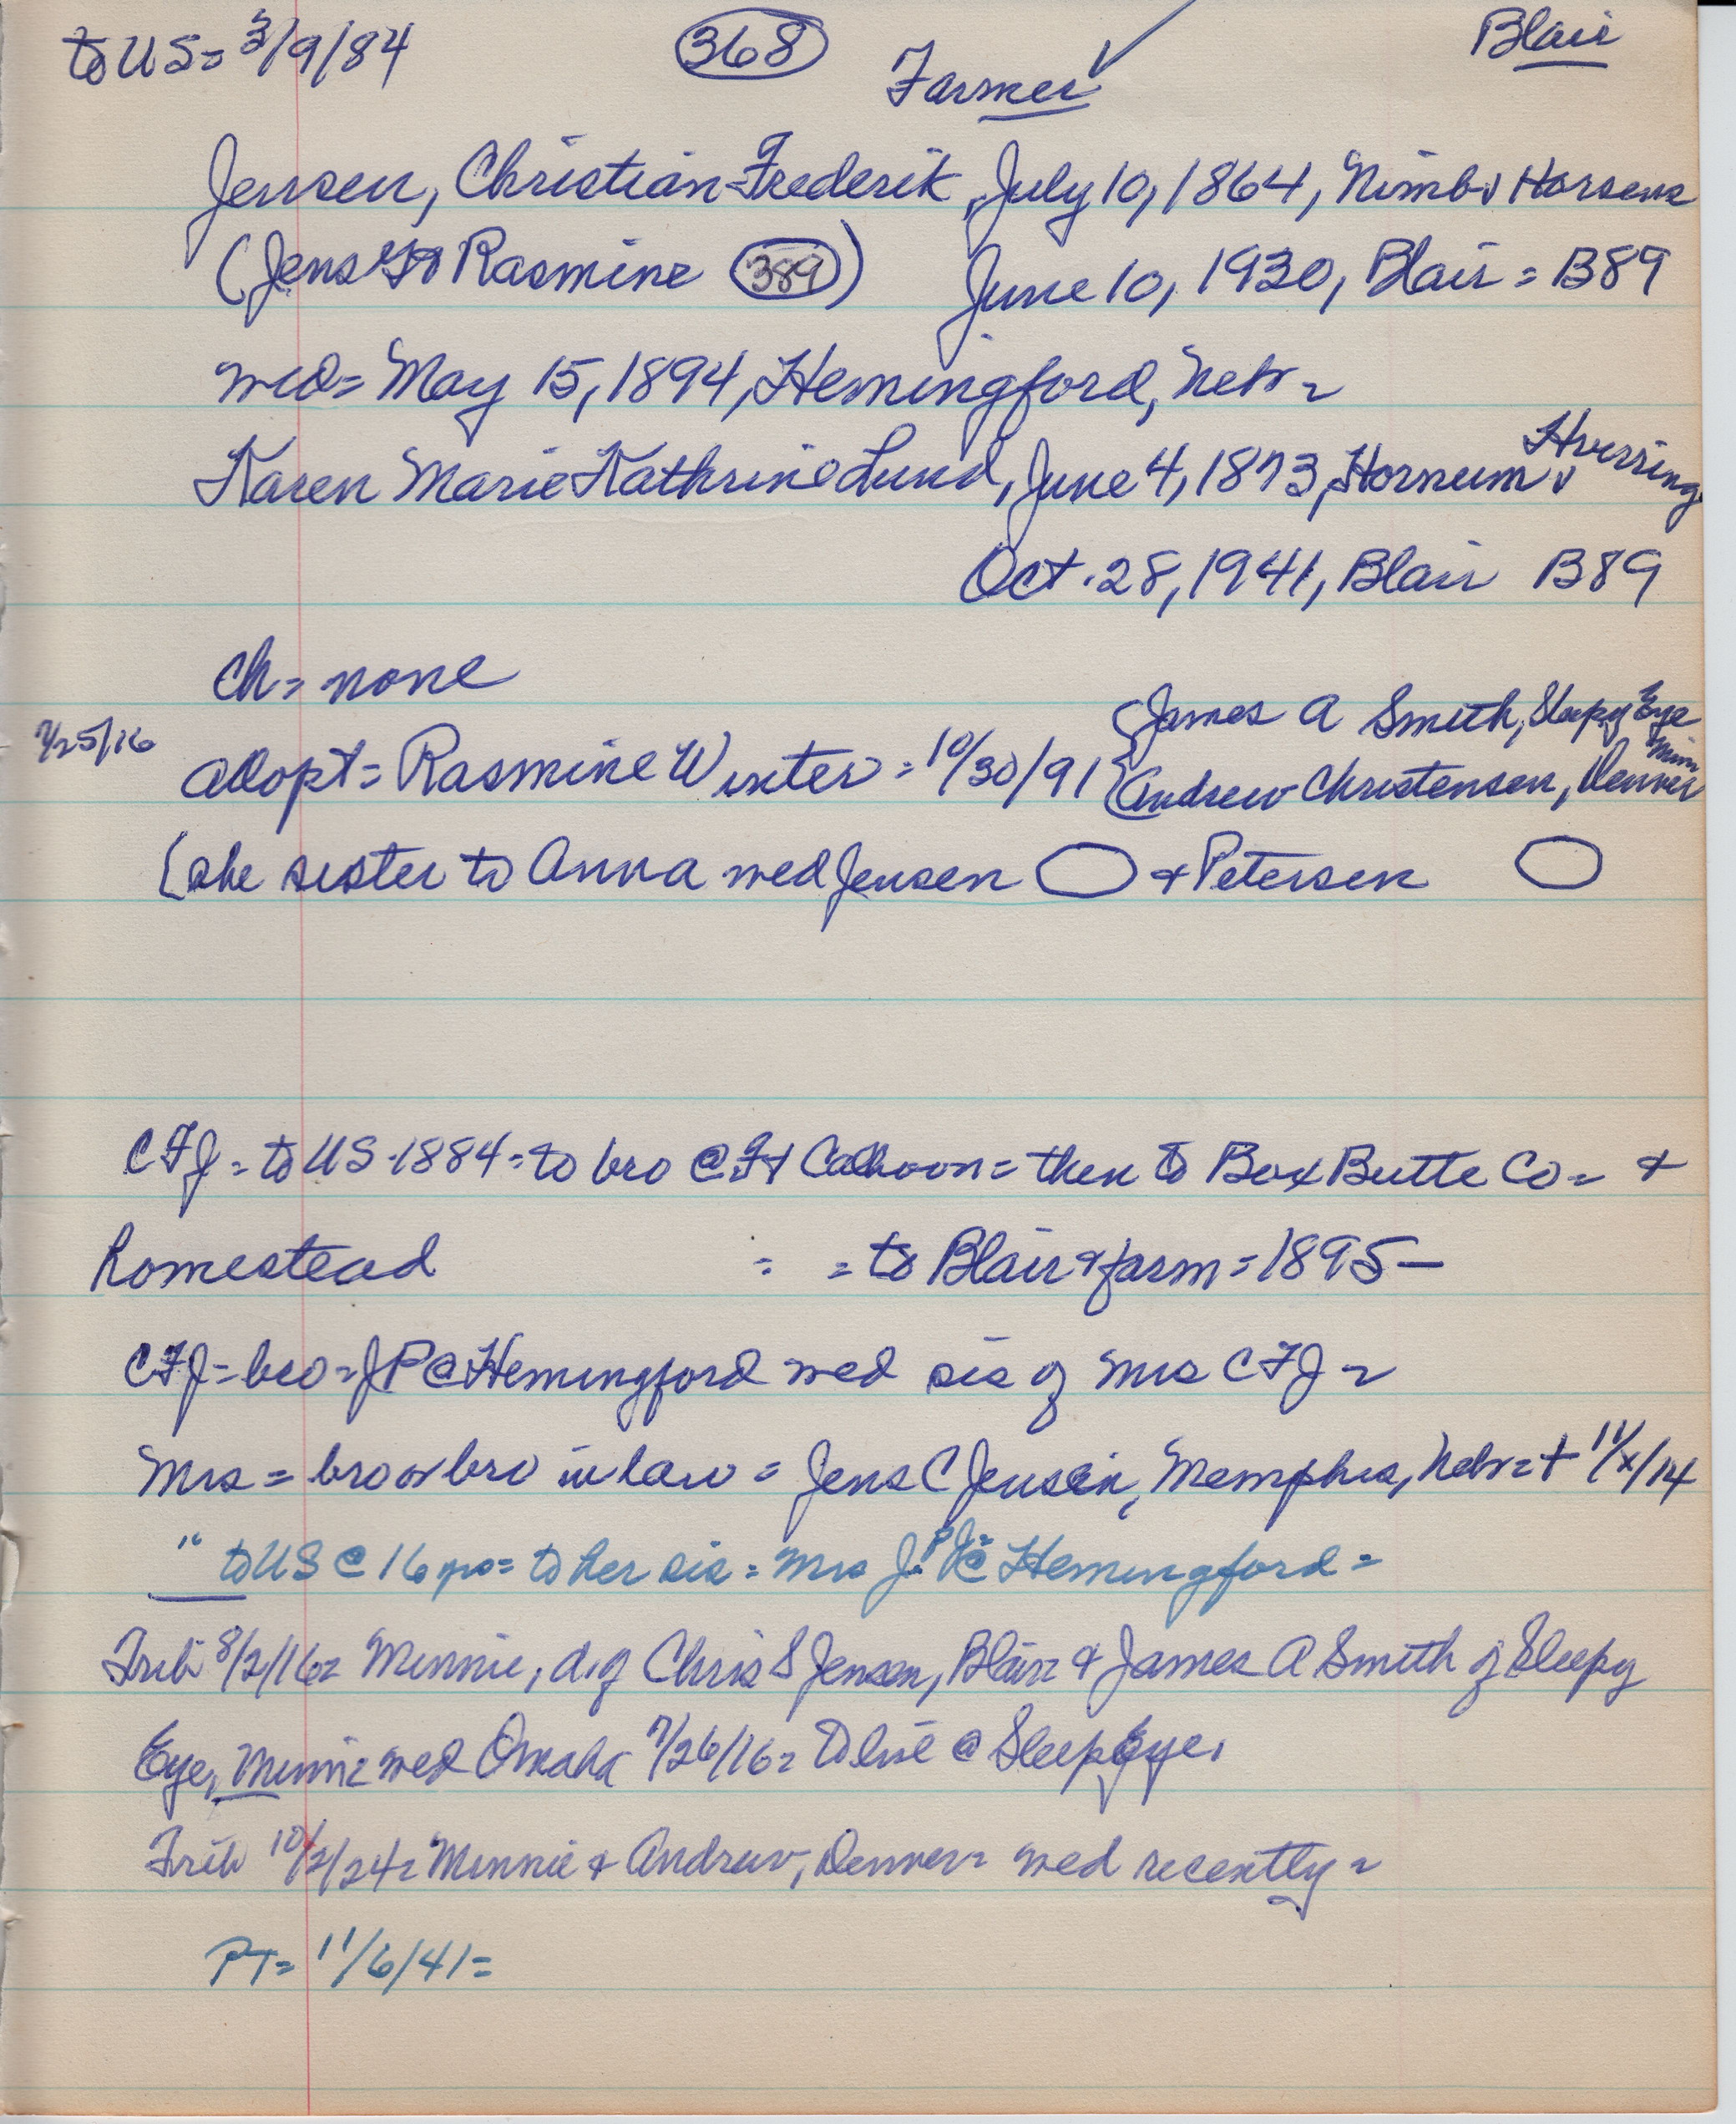 to US = 3/9/84 (368) Farmer ✓ Blair
Jensen, Christian Frederik, July 10, 1864, Nim b v Horsens
(Jens & Rasmine (389)) June 10, 1930, Blair = B89
wed = May 15, 1894, Hemingford, Nebr =
Karen Marie Kathrine Lund, June 4, 1873, Hornum v Hvirring
Oct. 28, 1941, Blair B89
Ch = none
7/25/16 adopt = Rasmine Winter = 10/30/91 { James A Smith, Sleepy Eye Minn
{ Andrew Christensen, Denver
(she sister to Anna wed Jensen & Petersen
CFJ = to US 1884 = to bro @ Ft Calhoon = then to Box Butte Co = &
homestead = = to Blair & farm = 1895 –
CFJ = bro = JP @ Hemingford wed sis of Mrs CFJ =
Mrs = bro or bro in law = Jens C Jensen, Memphis, Nebr = + 11/x/14
" to US @ 16 yrs = to her sis = Mrs J.P.J. @ Hemingford =
Trib 8/2/16 = Minnie, d. of Chris S Jensen, Blair & James A Smith of Sleepy
Eye, Minn = wed Omaha 7/26/16 = To live @ Sleepy Eye.
Trib 10/2/24 = Minnie & Andrew, Denver = wed recently =
PT = 11/6/41 =